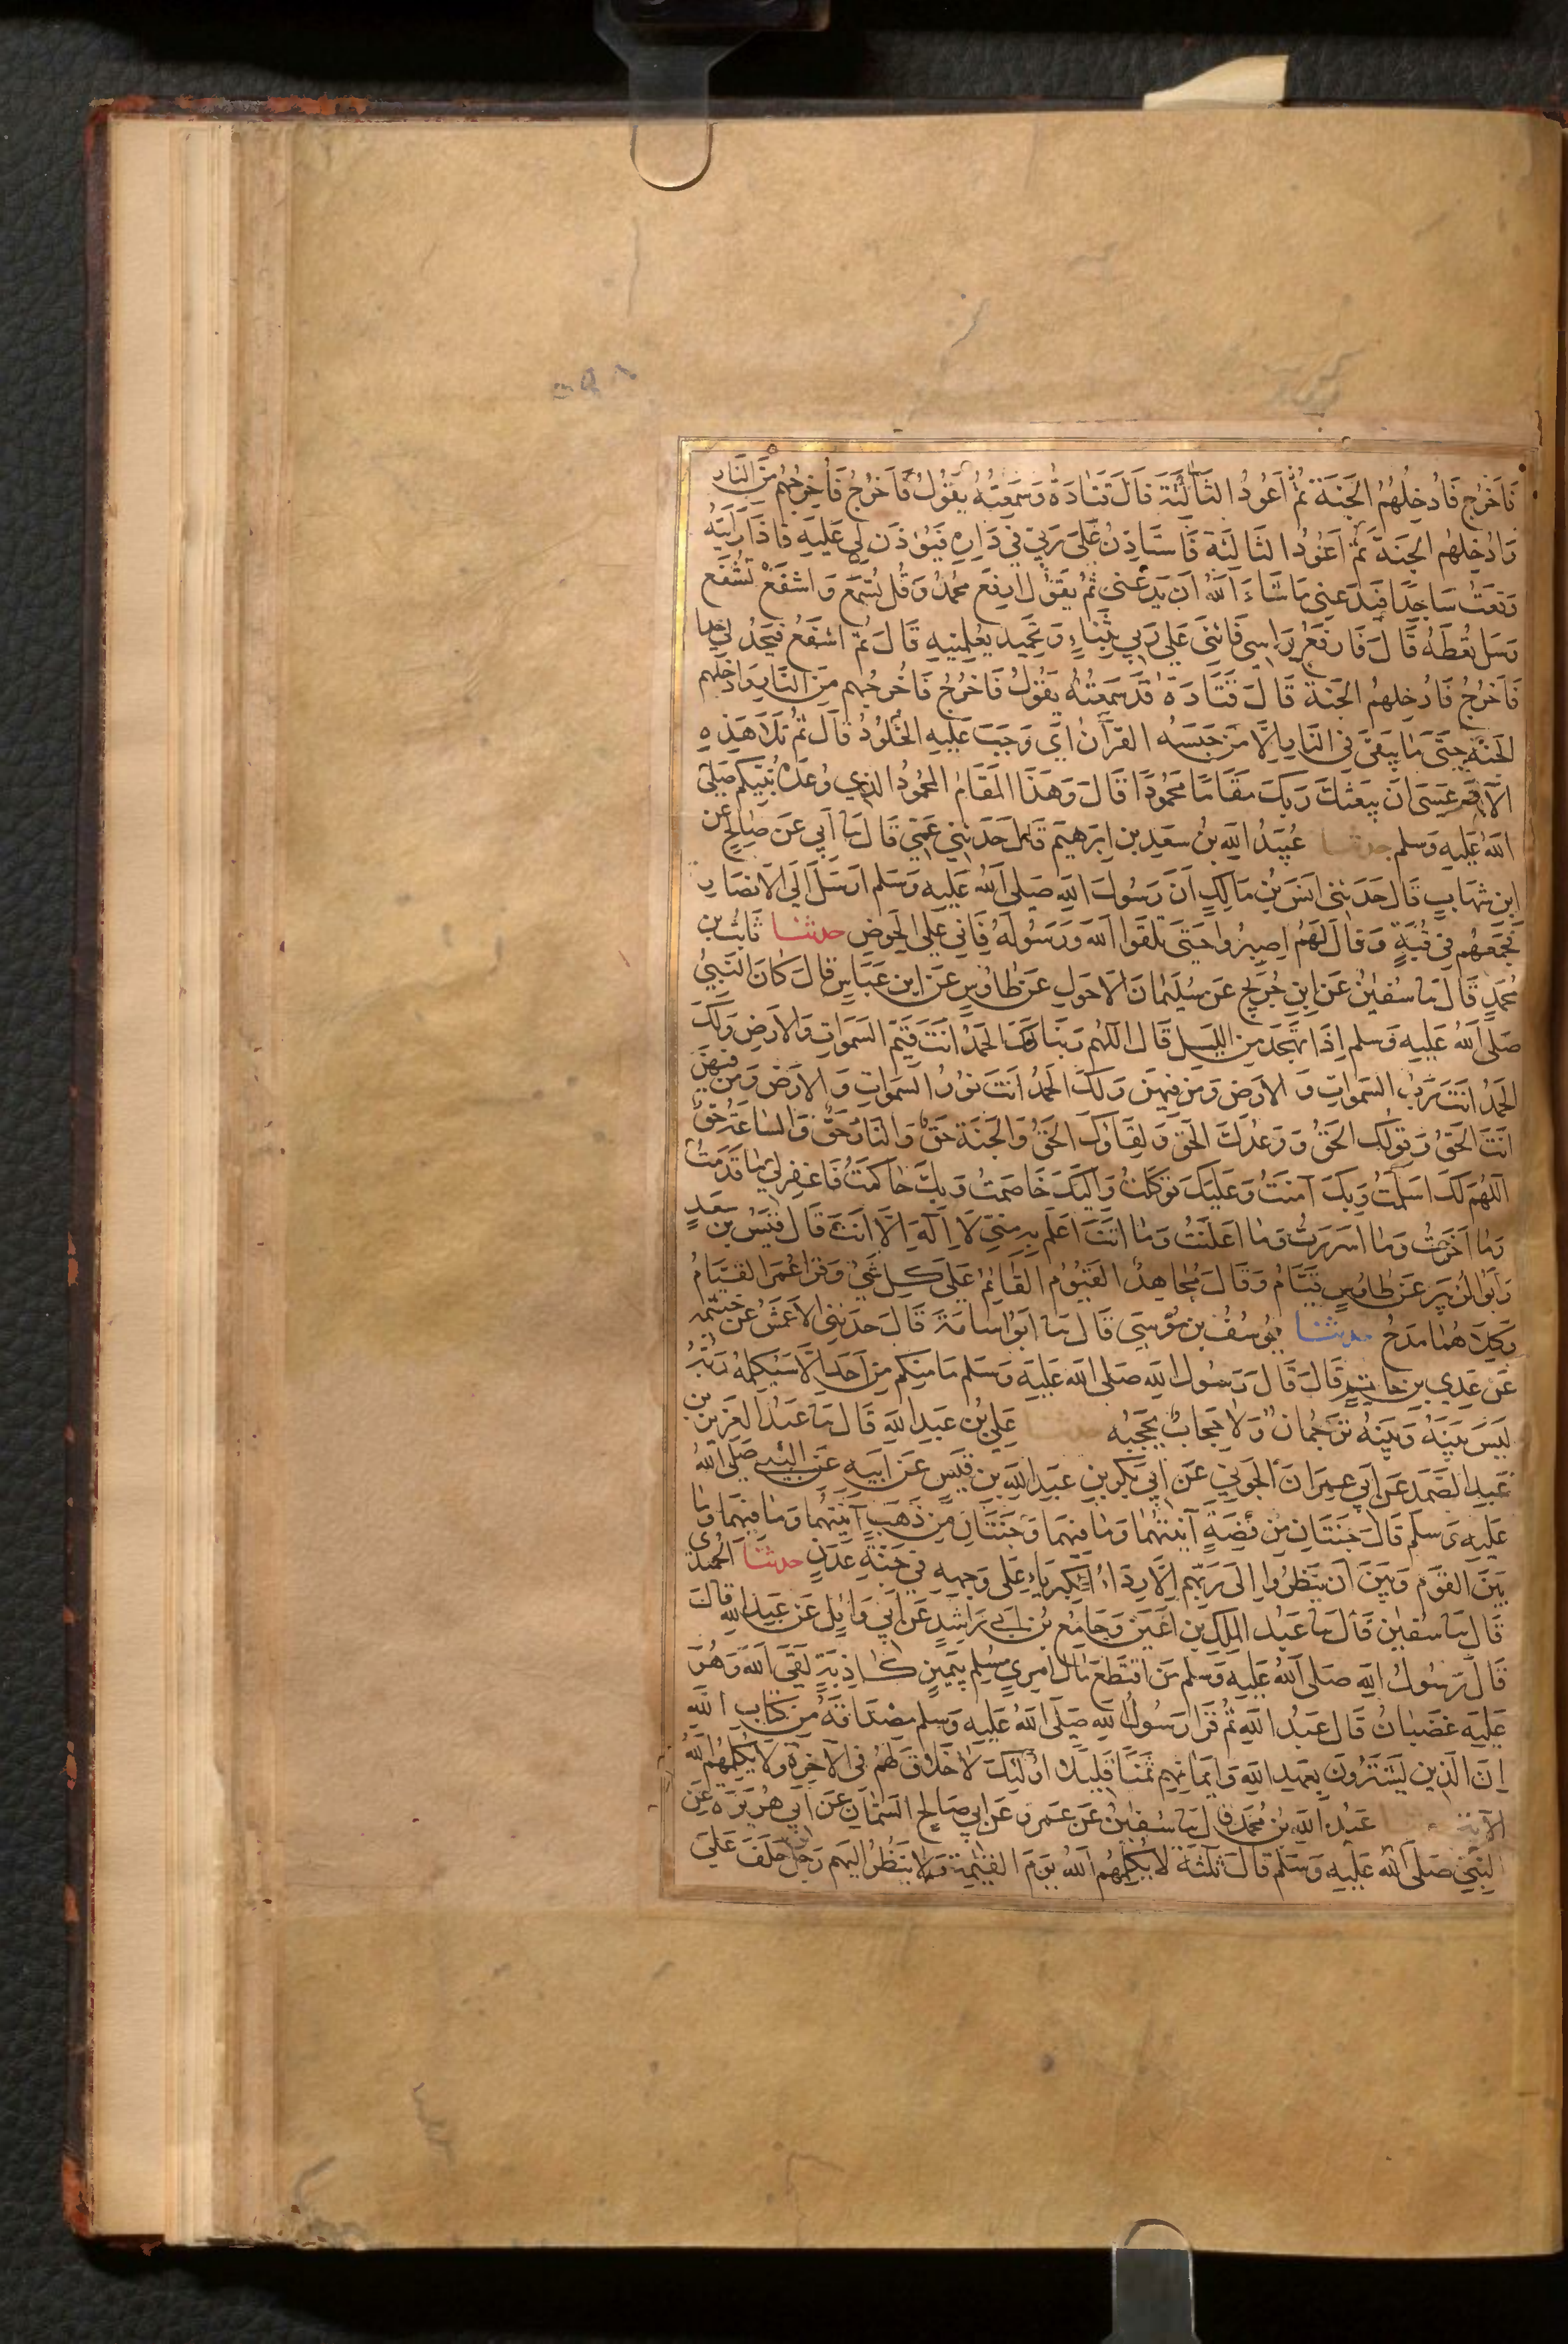 فَاَخرُج فَاُدخِلُهُمُ الجَنَةَ ثُمَّ اَعُودُ الثَالثَةَ قَالَ قَتَادَةُ وَسَمَعتُهُ يَقُولُ فَاَخرُجُ فَاُخرِجُهُم مِنَ النَارِ
وَاُدخِلهُم الجَنَةَ ثمَّ اَعُودُ الثَالثَةَ فَاَستَاذِنُ عَلَى رَبِي فِي دَارِهِ فَيُوذَن لِي عَلَيهِ فَاذَا رَاَيتُهُ
وَقَعَتُ سَاجِدًا فَيَدَعنِي مَا شَاءَ اللهُ اَن يَدَعَنِي ثُمَّ يَقُولُ ارفَع مُحَمدُ وَقُل تُسمَع وَاشفَعْ تُشَفَع
وَسَل تُعطَهُ قَالَ فَارفَعُ رَاسِي فَاثنِي عَلَى رَبِي بِثَنَاءٍ وَتَحمِيدٍ يُعَلِمنِيهِ قَالَ ثُمَّ اشفَعُ فَيَحُدُ لِي حدا
فَاَخرُجُ فَاُدخِلهُمُ الجَنَةَ قَالَ قَتَادَةُ قَد سَمِعتُهُ يَقُولُ فَاَخرُجُ فَاُخرِجُهُم مِنَ النَارِ وَاُدخِلهم
الجَنَةَ حَتَى مَا يَبقَى فِي النَارِ اِلَّا مَن حَبَسَهُ القُرآنُ اَي وَجَبَ عَلَيهِ الخُلُودُ قَالَ ثُمَّ تَلَا هَذِهِ
الآيَةَ عَسَى اَن يَبعَثَكَ رَبكَ مَقَامًا مَحمُودًا قَالَ وَهَذَا المَقَامُ المَحمُودُ الذِي وُعِدَهُ نَبِيكُم صَلى
اللهُ عَلَيهِ وَسَلم حدثنا عُبَيدُ اللهِ بنُ سَعِيدِ بنِ اِبرَهِيمَ قَالَ حَدَثَنِي عَمِي قَالَ ثنا اَبِي عَن صَالِحٍ عَن
ابنِ شِهَابٍ قَالَ حَدَثَنِي اَنَسُ بنُ مَالِكٍ اَنَّ رَسُولَ اللهِ صَلَى اللهُ عَلَيهِ وَسَلم اَرسَلَ اِلَى الاَنصَارِ
فَجَمَعَهُم فِي قُبَةٍ وَقَالَ لَهُم اصبِرُوا حَتَى تَلقَوا اللهَ وَرَسُولَهُ فَانِي عَلَى الحَوضِ حدثنا ثَابِتُ بنُ
مُحَمَدٍ قَالَ ثنا سُفيٰنُ عَنِ ابنِ جُرَيجٍ عَن سُلَيمَانَ الاَحوَلِ عَن طَاوُسٍ عَنِ ابنِ عَبَاسٍ قَالَ كَانَ النَبِيُ
صَلَى اللهُ عَلَيهِ وَسَلم اِذَا تَهَجَدَ مِنَ الليَلِ قَالَ اللهُم رَبَنَا لَكَ الحَمدُ اَنتَ قَيِّمُ السَمَوَاتِ وَالاَرضِ وَلَكَ
الحَمدُ اَنتَ رَبُ السَمَوَاتِ وَالاَرضِ وَمَن فِيهِنَ وَلَكَ الحَمدُ اَنتَ نُورُ السَمَوَاتِ وَالاَرضِ وَمَن فيهِنَ
اَنتَ الحَقُ وَقَولُكَ الحَقُ وَوَعدُكَ الحَق وَلِقَاوُكَ الحَقُ وَالجَنَةُ حَق وَالنَارُ حَقٌ وَالسَاعَةُ حَقٌ
اللهُمَ لَكَ اَسلَمتُ وَبِكَ آمَنتُ وَعَلَيكَ تَوَكَلتُ وَاِلَيكَ خَاصَمتُ وَبِكَ حَاكَمتُ فَاغفِر لِي مَا قَدَمتُ
وَمَا اَخَرتُ وَمَا اَسرَرتُ وَمَا اَعلَنتُ وَمَا اَنتَ اَعلَمُ بِهِ مِنِّي لَا اِلَهَ اِلَّا اَنتَ قَالَ قَيسُ بنُ سَعدٍ
وَاَبُو الزُبَيرِ عَن طَاوُسٍ قَيَّامُ وَقَالَ مُجَاهِدٌ القَيُومُ القَائِمُ عَلَى كُلِ شَيءٍ وَقَرَا عُمَرُ القَيَّامُ
وَكِلَاهُمَا مَدحُ حدثنا يُوسُفُ بنُ مُوسَى قَالَ ثنا اَبُو اُسَامَةَ قَالَ حَدَثَنِي الاَعمَشُ عَن خَيثَمَة
عَن عَدِي بنِ حَاتِمٍ قَالَ قَالَ رَسُولُ اللهِ صَلَى اللهُ عَلَيهِ وَسَلَم مَا مِنكُم مِن اَحَدٍ اِلَّا سَيُكَلِمُهُ رَبُهُ
لَيسَ بَينَهُ وَبَينَهُ تَرجُمَانٌ وَلَا حِجَابٌ يَحجُبُه حدثنا عَلِيُ بنُ عَبدِ اللهِ قَالَ ثنا عَبدُ العَزِيزِ بن
عَبدِ الصَمَدِ عَن اَبِي عِمرَانَ الجَونِيِ عَن اَبِي بَكرِ بنِ عَبدِ اللهِ بنِ قَيسٍ عَن اَبِيهِ عَنِ النَبِي صَلَى اللهُ
عَلَيهِ وَسلم قَالَ جَنَتَانِ مِن فِضَةٍ آنِيَتُهُمَا وَمَا فِيهِمَا وَجَنَتَانِ مِن ذَهَبٍ آنِيَتُهُمَا وَمَا فِيهِمَا وَمَا
بَينَ القَومِ وَبَينَ اَن يَنظُرُوا اِلَى رَبِهِم اِلَّا رِدَاءُ الكِبرِيَاءِ عَلَى وَجهِهِ فِي جَنَّةِ عَدنٍ حدثنا الحُمَيدِي
قَالَ ثنا سُفيَٰنُ قَالَ ثنا عَبدُ المَلِكِ بنِ اَعيَنَ وَجَامِعُ بنُ اَبِي رَاشِدٍ عَن اَبِي وَائِلٍ عَن عَبدِ اللهِ قَالَ
قَالَ رَسُولُ اللهِ صَلَى اللهُ عَلَيهِ وَسَلم مَن اقتَطَعَ مَالَ امرِيٍ مُسلِمٍ بِيَمِينٍ كَاذِبَةٍ لَقِيَ اللهَ وَهُوَ
عَلَيهِ غَضبَانُ قَالَ عَبدُ اللهِ ثُمَّ قَرَا رَسُولُ اللهِ صَلَى اللهُ عَلَيهِ وَسَلم مِصدَاقَهُ مِن كِتَابِ اللهِ
اِنَّ الذِينَ يَشتَرُونَ بِعَهدِ اللهِ وَاَيمَانِهِم ثَمَنًا قَلِيلًا اُولَئِكَ لَا خَلَاقَ لَهُم فِي الآخِرَةِ وَلَا يُكَلِمُهُمُ اللهُ
الآيَة عَبدُ اللهِ بنُ مُحَمَدٍ قَالَ ثنا سُفيٰنُ عَن عَمرٍو عَن اَبِي صَالِحٍ السَمَانِ عَن اَبِي هُرَيرَةَ عَنِ
النَبِيِ صَلَى اللهُ عَلَيهِ وَسَلَم قَالَ ثَلٰثَةٌ لَا يُكَلِمُهُمُ اللهُ يَومَ القِيٰمَةِ وَلَا يَنظُرُ اِلَيهِم رَجُلٌ حَلَفَ عَلَى